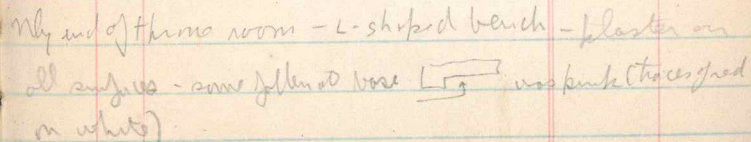 Nly end of throne room - L-shaped bench - plaster on
all surfaces - some fallen at base was pink (traces of red
on white)